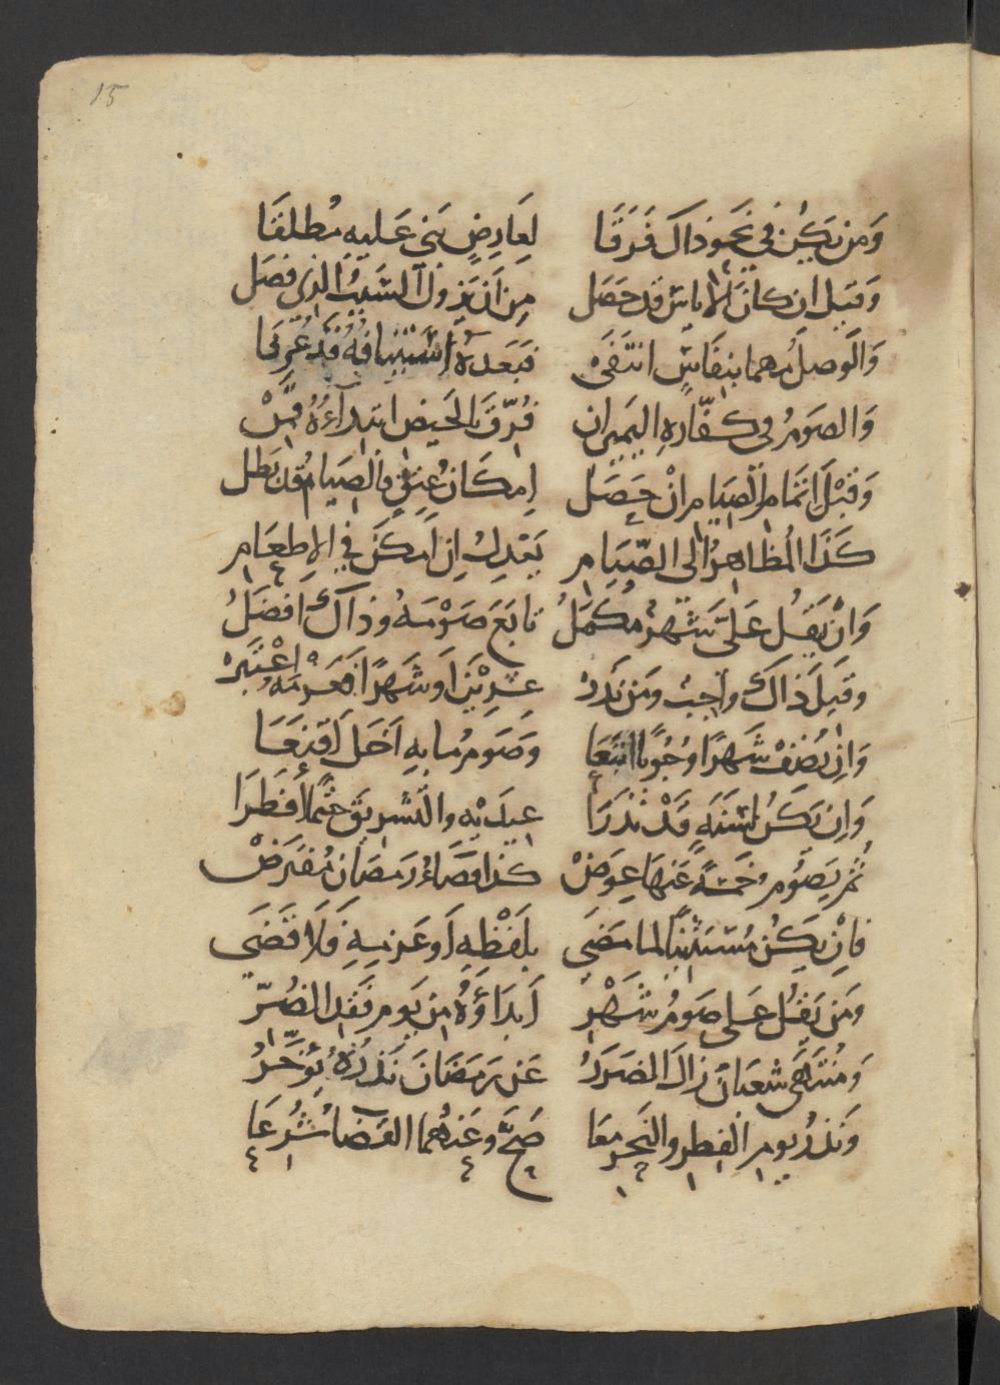 15
وَمن يَكُن في نَحوِ ذاكَ فَرَقَا لِعَارِضٍ بَنى عَليهِ مُطلقَا
وَقيل ان كانَ الاياس قد حَصَل مِن اَن يَزولَ الشيبُ الذي فصَل
وَالوصلُ مهما بنِفَاسٍ انتَفَى فبَعدهُ استينافهُ قد عُرِفَا
وَالصَومُ في كفّارةِ اليَمين ان فُرّقَ بالحَيض ابتداءهُ
وَقبْلَ اتمَام الصيَام انْ حَصَل اِمكَان عِتقٍ فالصيَامُ قد بَطل
كَذا المُظاهِرُ الى الصّيَامِ يَعْدِلُ اِن اَمكَنَ في الاِطعَامِ
وَانْ يَقُل عَلىَّ شَهرٌ مُكمَلُ تابَعَ صَوْمَهُ وذاكَ افضَلُ
وقيلَ ذاكَ واجبٌ ومَن نَذرْ عِشرِيْنَ اَو شَهرًا اعْتُبِرْ
وَاِن يُضِفْ شَهرًا وُجُوبًا اتبَعَا وَصَومُ ما بهِ اَخَلَّ اَوقعَا
وَاِن يَكُن لسَنَةٍ قَدْ نذَرَا عِيدَيْه والتَشريق حَتمًا أفطَرَا
ثُم يَصُوم خَمسَةً عَنهَا عِوَضْ كذا قضَاءُ رَمضَان مُفتَرَضْ
فاِنْ يَكُن مُستَثنِيًا لما مَضَى بلَفْظِهِ اَو عَزمِهِ فَلا قضَى
وَمَن يَقُل عَلي صَومُ شَهْرِ اَبدَاؤُهُ مِن يَوم فَقدِ الضُرّ
وَمُنتَهَى شعبَان زالَ الضرَرُ عَن رَمَضَانَ نَذرُهُ يُؤخَّرُ
وَنَذرُ يومِ الفِطرِ والنَحرِ مَعَا صَحَّ وعَنهُما القضَا شُرِعَا